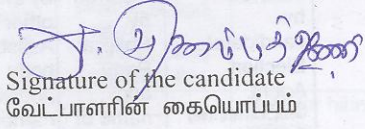 Signature of the candidate
வேட்பாளரின் கையொப்பம்